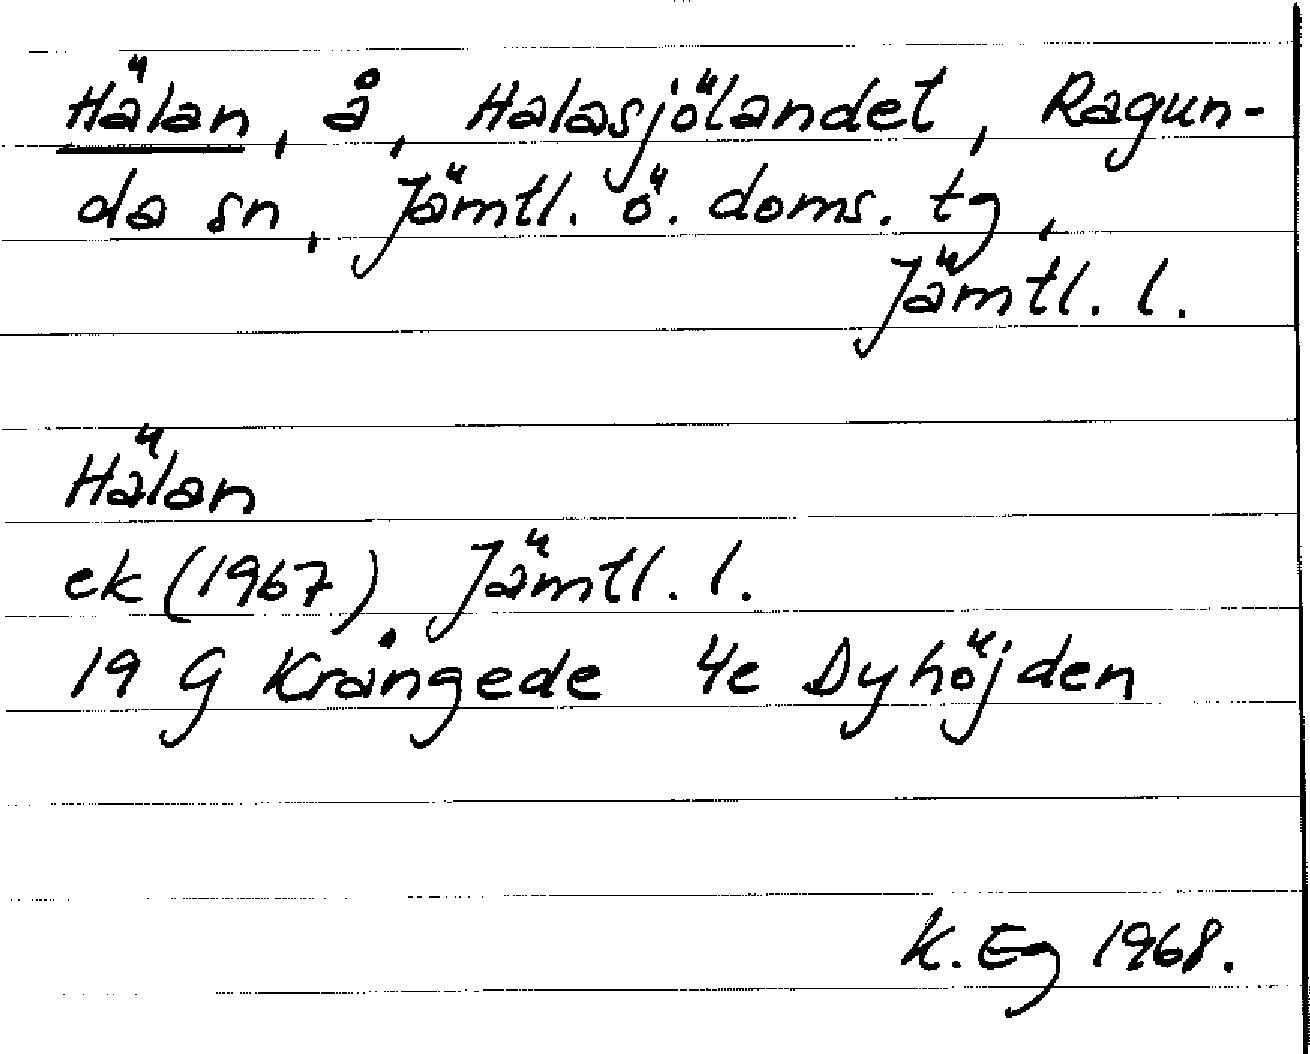 Hälan, å, Halasjölandet, Ragun-
da sn, Jämtl. ö. doms. tg,
Jämtl. l.
Hälan
ek (1967) Jämtl. l.
19 G Krångede 4e Dyhöjden
K. Eg 1968.